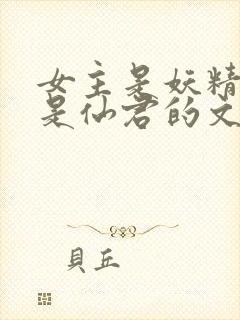 女主是妖精
是仙君的文
貝丘